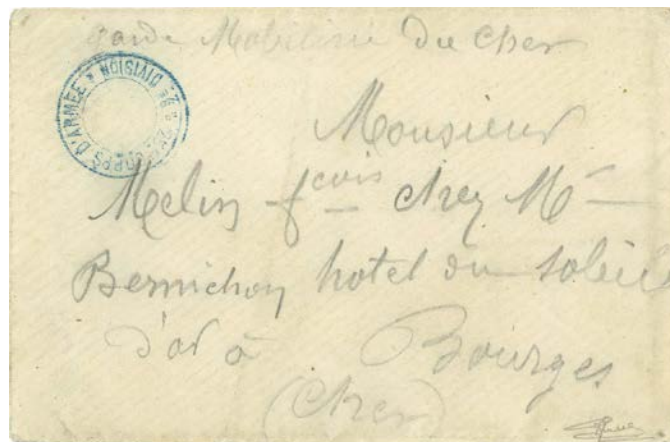 garde Mobilisée du Cher
CORPS D'ARMÉE * DIVISION
Monsieur
Melin fcois chez Mr
Bernichon hotel du soleil
d'or à Bourges
(Cher)